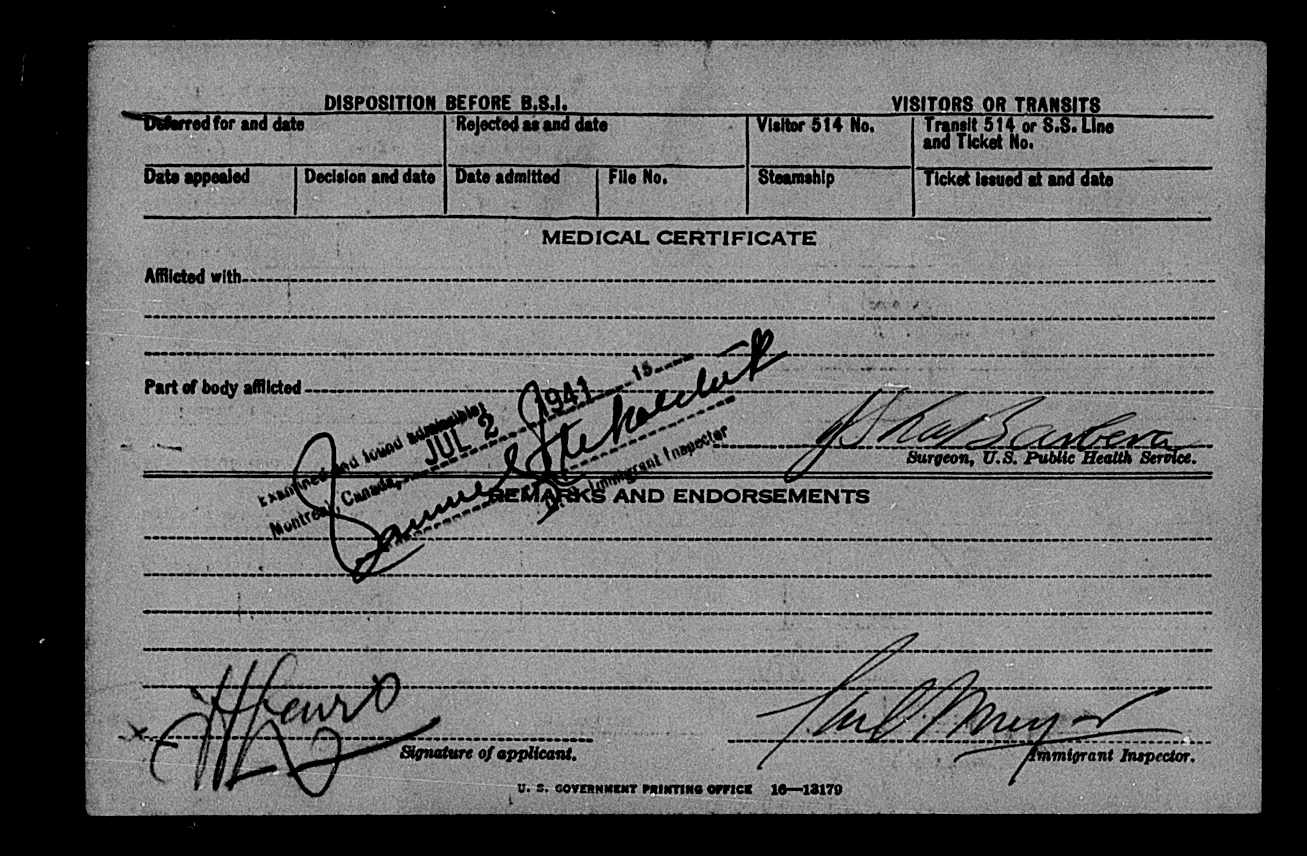 DISPOSITION BEFORE B.S.I. VISITORS OR TRANSITS
Deferred for and date Rejected as and date Visitor 514 No. Transit 514 or S.S. Line
and Ticket No.
Date appealed Decision and date Date admitted File No. Steamship Ticket issued at and date
MEDICAL CERTIFICATE
Afflicted with
Part of body afflicted
Examined and found admissible
Montreal, Canada, JUL 2 1941 15
Samuel
U.S. Immigrant Inspector
Surgeon, U.S. Public Health Service.
REMARKS AND ENDORSEMENTS
X
Signature of applicant.
Immigrant Inspector.
U. S. GOVERNMENT PRINTING OFFICE 16—13179